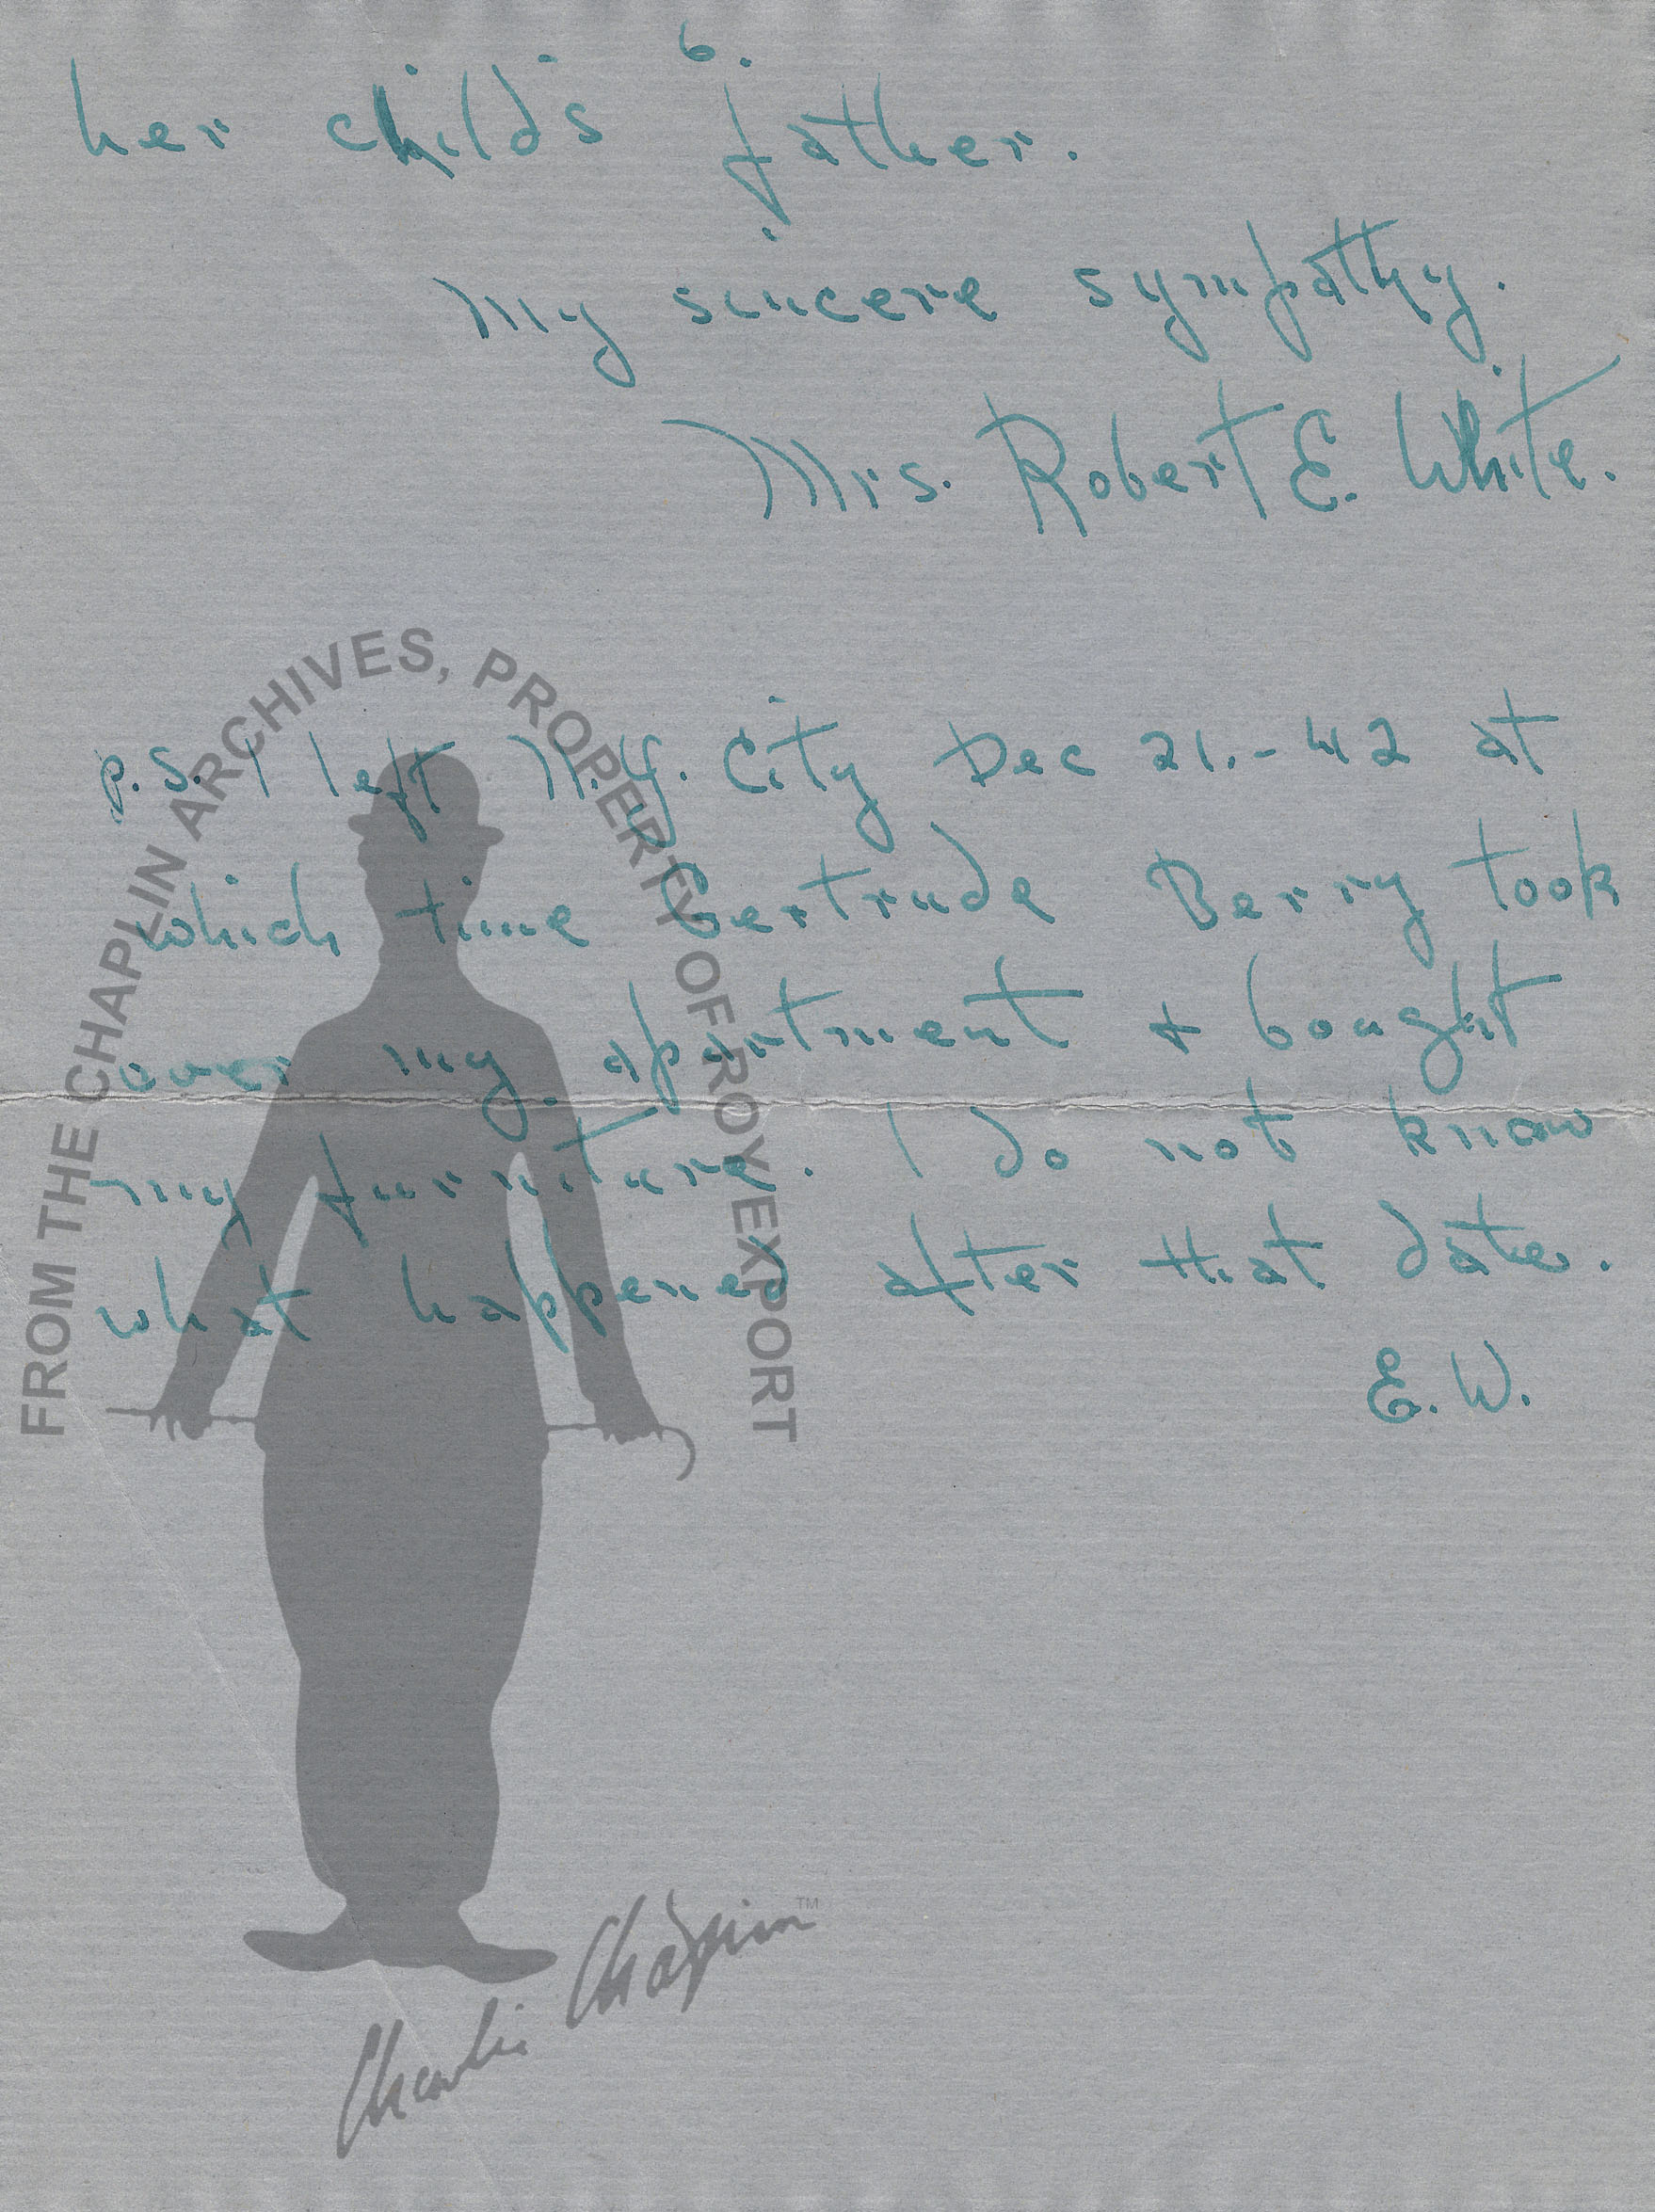 6.
her childs father.
My sincere sympathy.
Mrs. Robert E. White.
p.s. I left N.Y. City Dec 21.-42 at
which time Gertrude Berry took
over my apartment + bought
my furniture. I do not know
what happened after that date.
E.W.
FROM THE CHAPLIN ARCHIVES, PROPERTY OF ROY EXPORT
Charlie Chaplin™